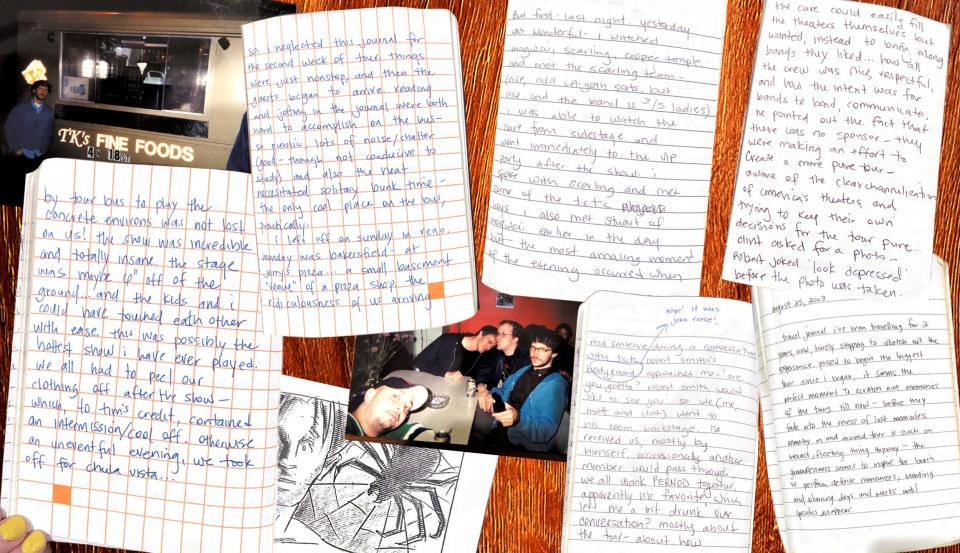 TK's FINE FOODS
4 N 18ST
so i neglected this journal for
the second week of tour. things
were just nonstop, and then the
guests began to arrive. reading
and jotting in the journal were both
hard to accomplish on the bus—
so public lots of noise/chatter
(good—though not conducive to
study) and also the heat
necissitated solitary bunk time—
the only cool place on the bus,
practically.
i left off on sunday in reno.
monday was bakersfield- at
jerry's pizza... a small basement
"venue" of a pizza shop. the
ridiculousness of us arriving
by tour bus to play the
concrete environs was not lost
on us! the show was incredible
and totally insane. the stage
was maybe 6" off of the
ground... and the kids and i
could have touched each other
with ease. this was possibly the
hottest show i have ever played.
we all had to peel our
clothing off after the show—
which, to tim's credit, contained
an intermission/cool off. otherwise
an uneventful evening, we took
off for chula vista...
But first- last night. yesterday
was wonderful- i watched
mogwai, scarling, cooper temple
and met the scarling team-
(nice, odd LA goth sorts, but
nice and the band is 3/5 ladies)
i was able to watch the
cure from sidestage and
went immediately to the VIP
party after the show. i
spoke with scarling and met
some of the tctc
boys. i also met stuart of
mogwai earlier in the day
but the most amazing moment
of the evening occurred when
nope! it was
john reece!
mid sentence/during a conversation
with tctc, robert smith's
bodyguard approached me- 'are
you gretta? robert smith would
like to see you' so we (me,
matt and clint) went to
his room backstage. he
received us, mostly by
himself, occassionally another
member would pass through.
we all drank PERNOD together,
apparently his favorite which
left me a bit drunk. our
conversation? mostly about
the tour- about how
the cure could easily fill
the theaters themselves but
wanted, instead to bring along
bands they liked... how all
the crew was nice, respectful,
and how the intent was for
bands to band, communicate.
he pointed out the fact that
there was no sponsor- they
were making an effort to
create a more pure tour-
aware of the clearchannelization
of america's theaters, and
trying to keep their own
decisions for the tour pure...
clint asked for a photo-
robert joked 'look depressed'
before the photo was taken.
august 25, 2003
travel journal. i've been travelling for 2
years, now, barely stopping to sketch out the
experience. poised to begin the biggest
tour since i began, it seems the
perfect moment to scratch out memories
of the tours till now- before they
fade into the recess of lost memories.
memory in and around tour is such an
inexact, fleeting thing anyway- the
groundlessness seems to inspire the brain
to perform defense maneuvers, blending
and blurring days and weeks until
specifics disappear.